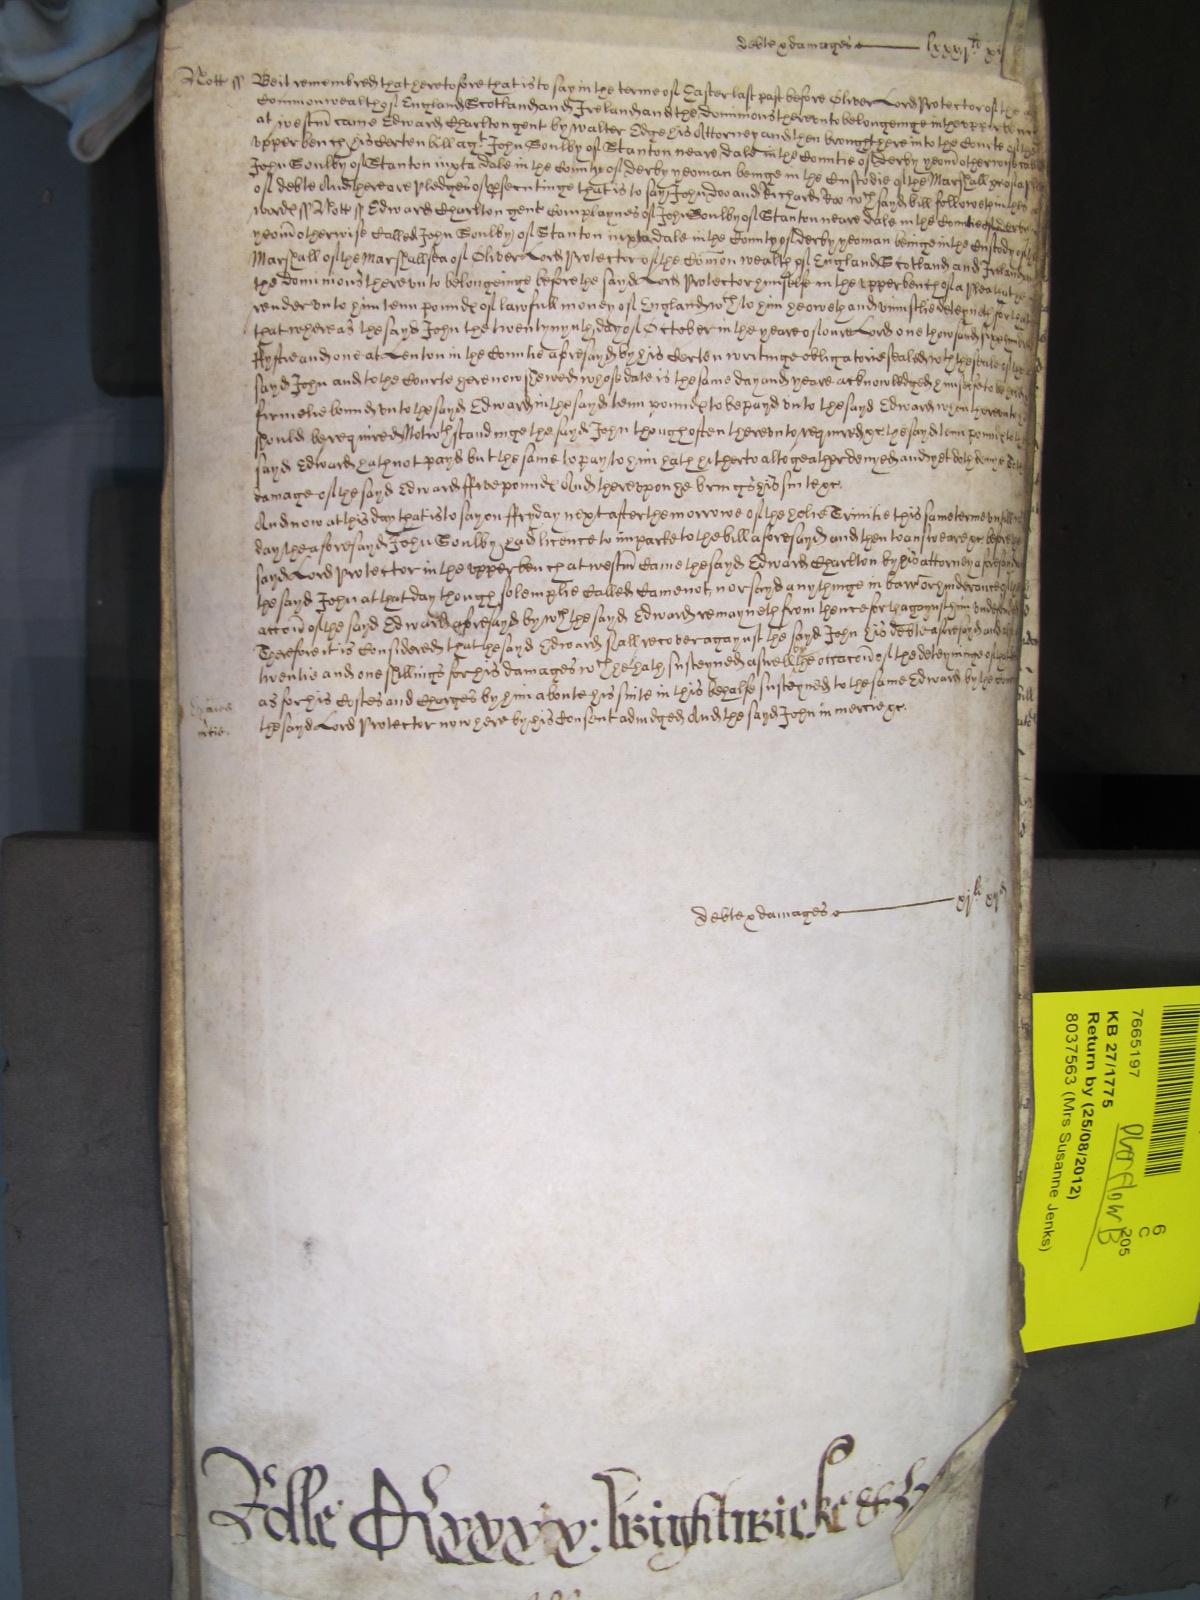 debte & damages lxxxjli xj
Nott ss Be it remembred that heretofore that is to say in the terme of Easter last past before Oliver Lord Protector of the
Commonwealth of England Scotland and Ireland and the dominions thereunto belongeinge in the upper bench
at westm came Edward Charlton gent by Walter Edge his Attorney and then brought here into the Courte of the
upper bench his Certen bill agt John Soulby of Stanton neare dale in the Countie of derby yeom otherwise called
John Soulby of Stanton iuxta dale in the County of derby yeoman beinge in the Custodie of the Marshall &c of a plea
of debte And there are pledges of psecutinge that is to say John Doo and Richard Roo wch sayd bill followeth in these
wordes ss Nott ss Edward Charlton gent Complaynes of John Soulby of Stanton neare dale in the Countie of derby
yeom otherwise Called John Soulby of Stanton iuxta dale in the County of derby yeoman beinge in the Custody of the
Marshall of the Marshallsea of Oliver Lord Protector of the Comon wealth of England Scotland and Ireland
the dominions thereunto belongeinge before the sayd Lord Protector himselfe in the upper bench of a plea that he
render unto him tenn pounde of lawfull money of England wch to him he oweth and uniustlie deteyneth for that
that whereas the sayd John the twenty nynth day of October in the yeare of oure Lord one thowsand six hundred
fyftie and one at Lenton in the Countie aforesayd by his Certen writinge obligatorie sealed with the seale of the
sayd John and to the Courte here now shewed whose date is the same day and yeare acknowledged himselfe to be
firmelie bound unto the sayd Edward in the sayd tenn pounde to be payd unto the sayd Edward when thereunto
should be required Notwithstandinge the sayd John though often thereunto required &c the sayd tenn pounde to the
sayd Edward hath not payd but the same to pay to him hath hitherto altogeather denyed and yet doth denie to the
damage of the sayd Edward ffive pounde And thereupon he brings his suite &c.
And now at this day that is to say on ffryday next after the morrowe of the holie Trinitie this same terme untill
day the aforesayd John Soulby had licence to imparle to the bill aforesayd and then to answeare &c before the
sayd Lord Protector in the upper bench at westm Came the sayd Edward Charlton by his attorney aforesayd
the sayd John at that day though solemplie Called Came not nor sayd any thinge in barr or hinderance of the
accon of the sayd Edward aforesayd by wch the sayd Edward remayneth from thence forth agaynst him undefended
Therefore it is Considered that the sayd Edward shall recover agaynst the sayd John his debte aforesayd and
twentie and one shillings for his damages wch he hath susteyned aswell by the occacon of the deteyninge of that
as for his Costes and Charges by him aboute his suite in this behalfe susteyned to the same Edward by the
the sayd Lord Protector now here by his Consent adiudged And the sayd John in mercie &c.
mcie.
debte & damages xjli xijd
Rolle CLxxxxv: Brightwicke &
7665197
KB 27/1775
Return by (25/08/2012)
8037563 (Mrs Susanne Jenks)
6
C
205